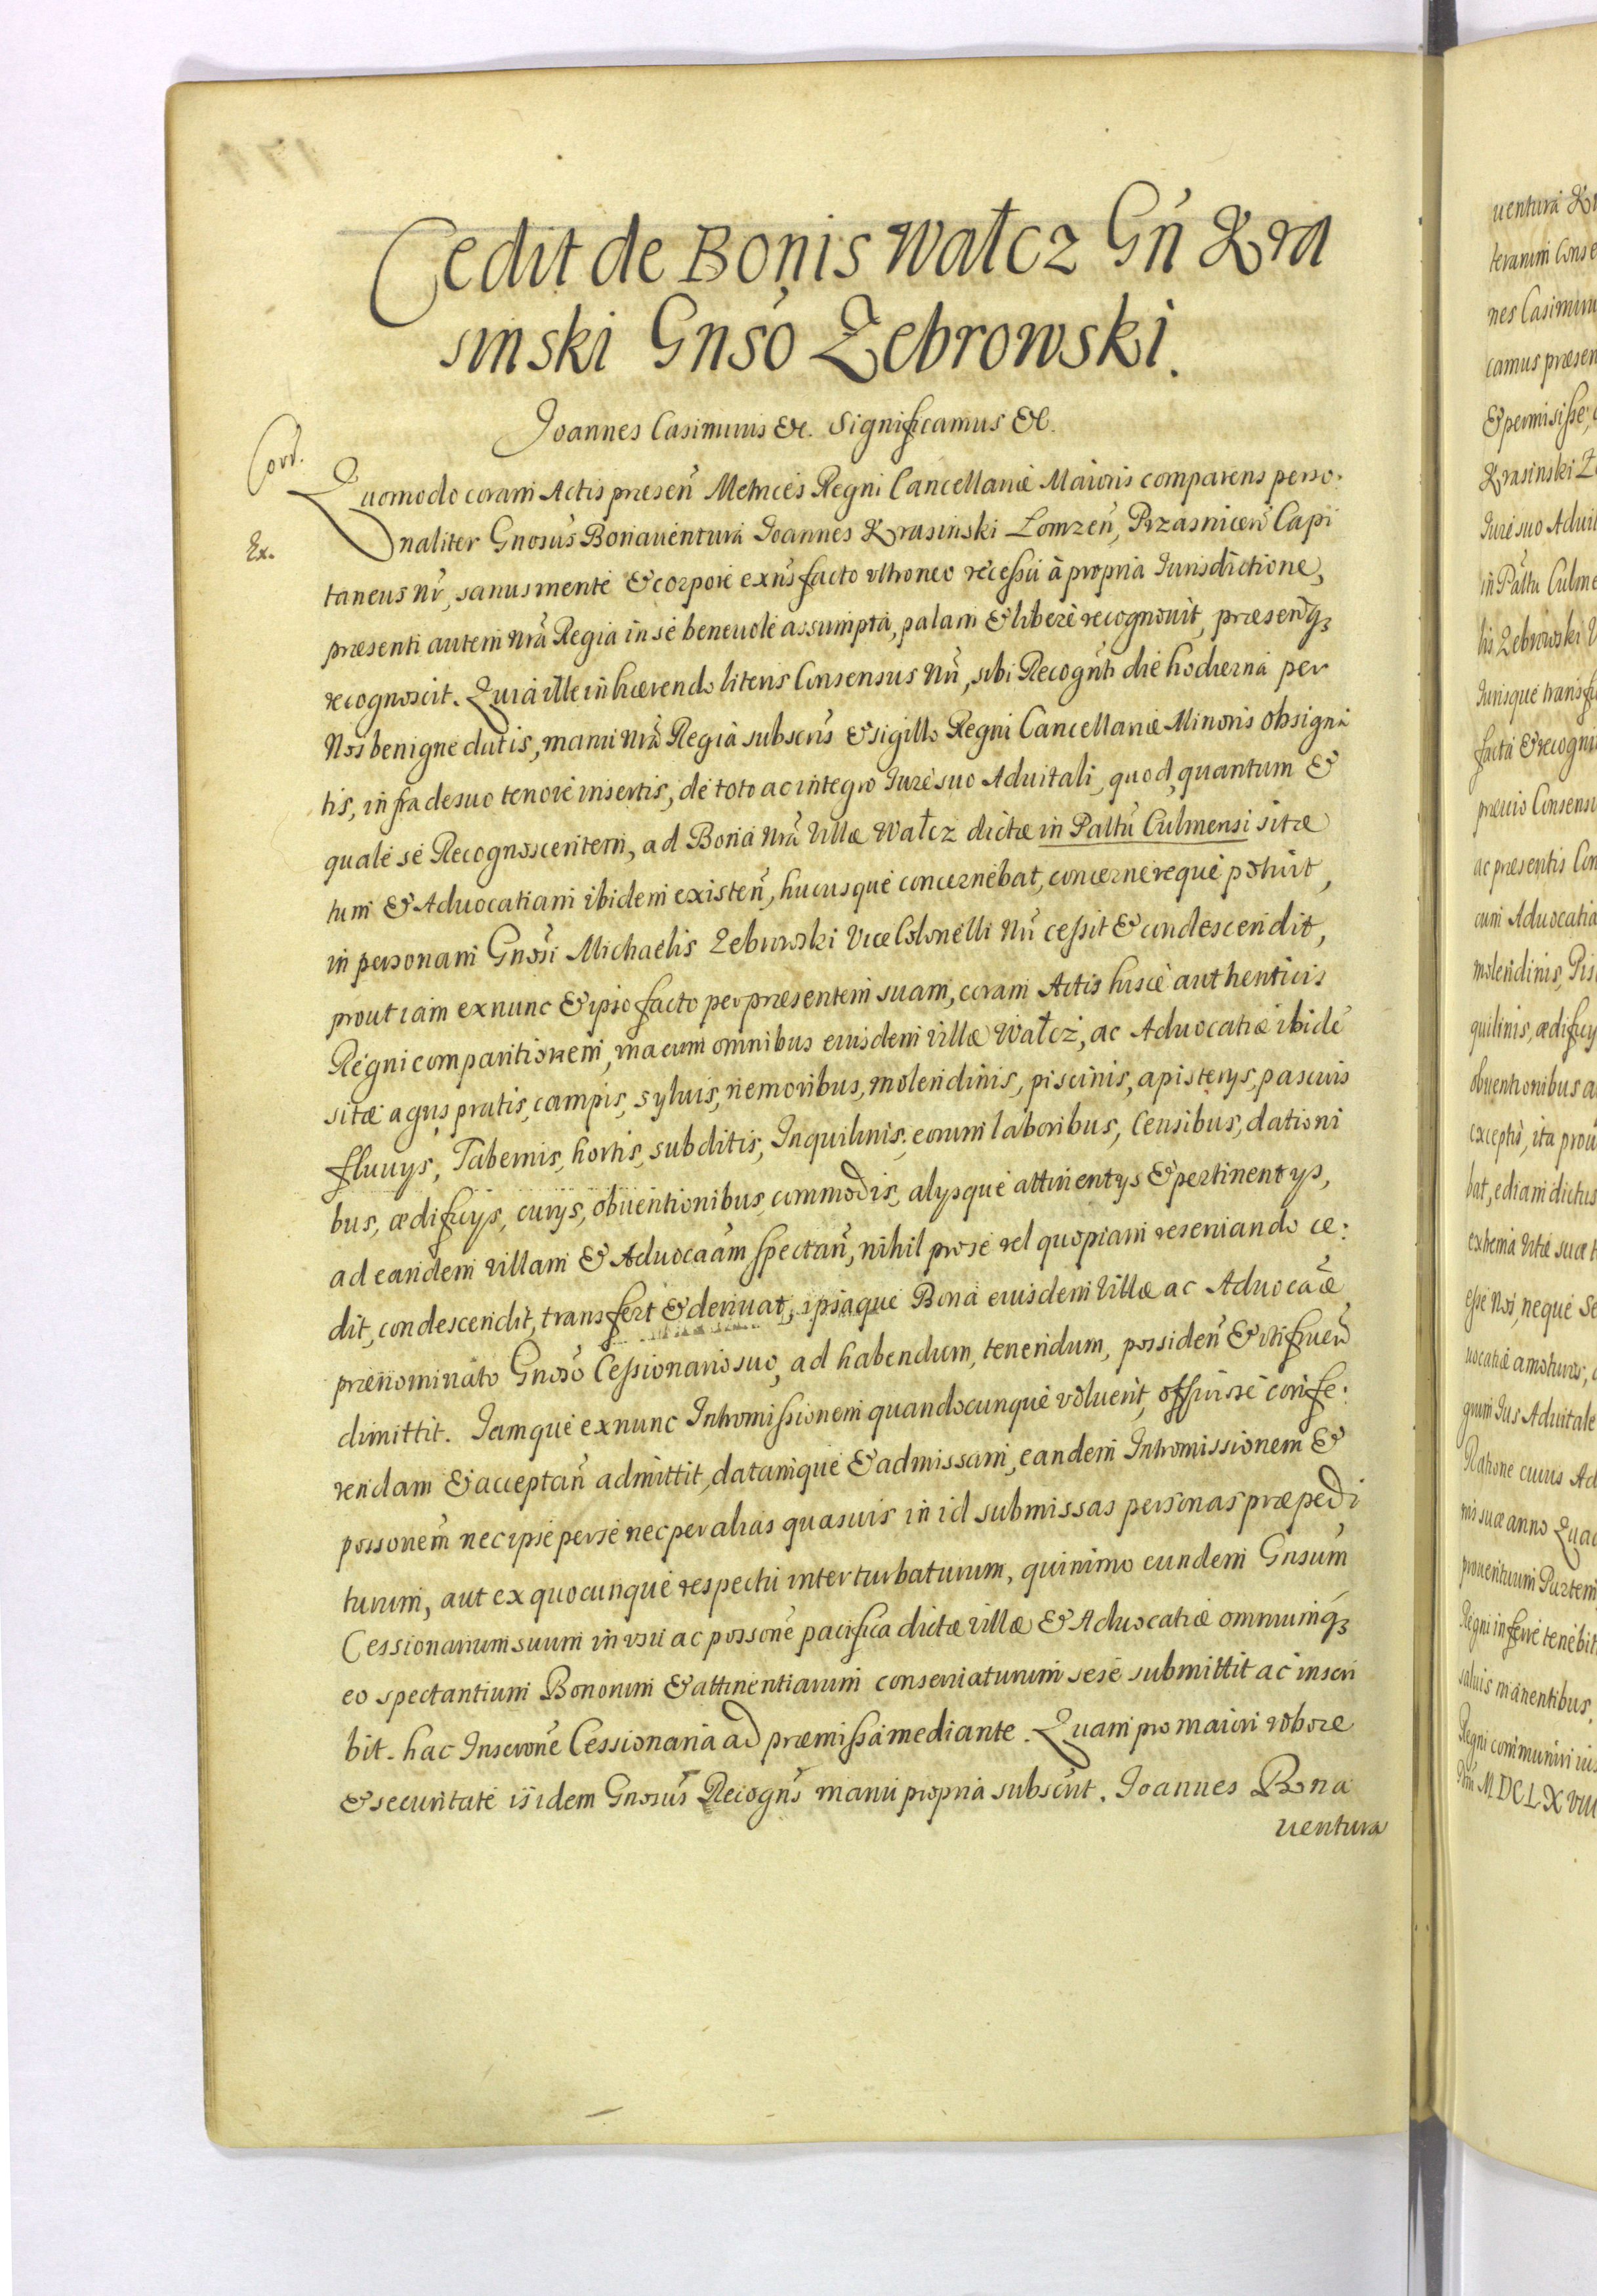 Cedit de Bonis Wałcz Gń Kra
sinski Gnso Zebrowski.
Joannes Casimirus &c. Significamus &c.
Cord.
Quomodo coram Actis præsen Metrices Regni Cancellariæ Maioris comparens perso:
Ex.
naliter Gnosus Bonauentura Joannes Krasinski Lomzen, Przasnicen Capi
taneus nr, sanus mente & corpore exns facto ultroneo recessu à propria Iurisdictione,
præsenti autem nra Regia in se beneuole assumpta, palam & libere recognouit, præsenq3
recognoscit. Quia ille inhærendo literis Consensus Nri, sibi Recognti die hodierna per
Nos benigne datis, manu nra Regia subscris & sigillo Regni Cancellariæ Minoris obsigna
tis, infra de suo tenore insertis, de toto ac integro Iure suo Aduitali, quod, quantum &
quale se Recognoscentem, ad Bona nra Villæ Wałcz dictæ in Paltu Culmensi sitæ
tum & Aduocatiam ibidem existen, hucusque concernebat, concernereque potuit,
in personam Gnosi Michaelis Zebrowski Vice Colonelli Nri cessit & condescendit,
prout iam exnunc & ipso facto per præsentem suam, coram Actis hisce authenticis
Regni comparitionem, una cum omnibus eiusdem Villæ Wałcz, ac Aduocatiæ ibidē
sitæ agris pratis, campis, syluis, nemoribus, molendinis, piscinis, apisterys, pascuis
fluuys, Tabernis, hortis, subditis, Inquilinis, eorum laboribus, Censibus, dationi
bus, ædificys, curys, obuentionibus, commodis, alysque attinentys & pertinentys,
ad eandem villam & Aduocaam spectan, nihil pro se vel quopiam reseruando ce:
dit, condescendit, transfert & deriuat, ipsaque Bona eiusdem Villæ ac Aduocaæ
prænominato Gnoso Cessionario suo, ad habendum, tenendum, possiden & utifruen
dimittit. Iamque exnunc Intromissionem quandocunque voluerit, offuisse confe:
rendam & acceptan admittit, datamque & admissam, eandem Intromissionem &
possonem nec ipse per se nec per alias quasuis in id submissas personas præpedi
turum, aut ex quocunque respectu interturbaturum, quinimo eundem Gnsum
Cessionarium suum in usu ac possone pacifica dictæ villæ & Aduocatiæ omniumq3
eo spectantium Bonorum & attinentiarum conseruaturum sese submittit ac inscri
bit. hac Inscrone Cessionaria ad præmissa mediante. Quam pro maiori robore
& securitate iidem Gnosus Recogns manu propria subscrit. Joannes Bona
uentura